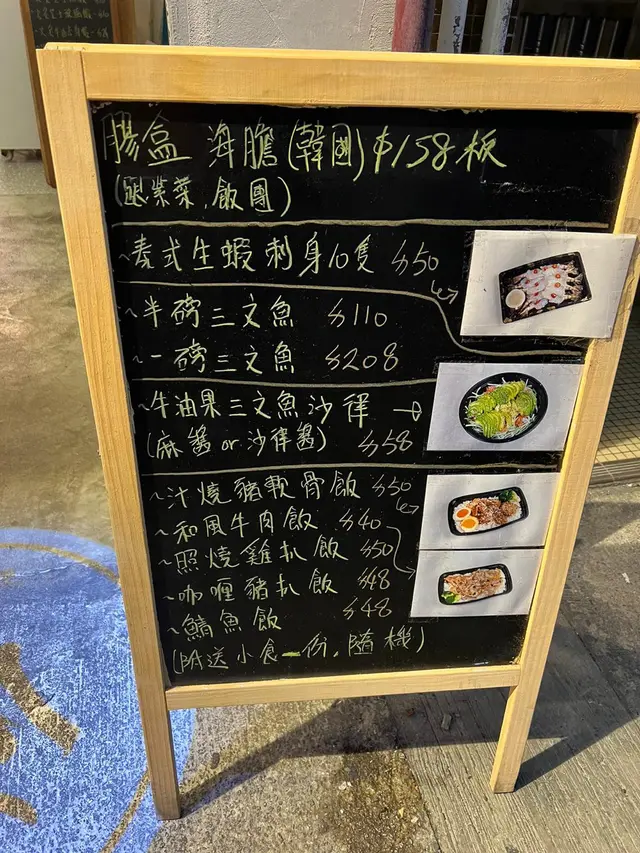 腸盒 海膽(韓國)$158板
(跟紫菜,飯團)
~泰式生蝦刺身10隻 $50
~半磅三文魚 $110
~一磅三文魚 $208
~牛油果三文魚沙律
(麻醬or沙律醬) $58
~汁燒豬軟骨飯 $50
~和風牛肉飯 $40
~照燒雞扒飯 $50
~咖喱豬扒飯 $48
~鯖魚飯 $48
(附送小食一份,隨機)